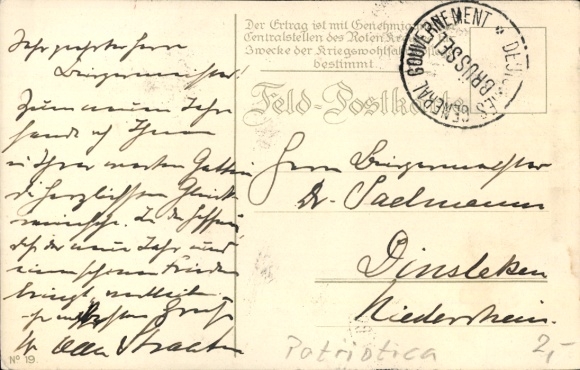 Der Ertrag ist mit Genehmig
Centralstellen des Roten Kr
Zwecke der Kriegswohlfa
bestimmt.
Feld-Postkarte
GENERAL GOUVERNEMENT * DEUTSCHES
BRÜSSEL
Sehr geehrter Herr
Bürgermeister!
Zum neuen Jahr
sende ich Ihnen
u Ihrer werten Gattin
die herzlichsten Glück
wünsche. In der Hoffnung
daß das neue Jahr uns
einen schönen Frieden
bringt
Gruß
Herrn Bürgermeister
Dr. Saelmann
Dinslaken
Niederrhein.
No 19.
Patriotica
2,-